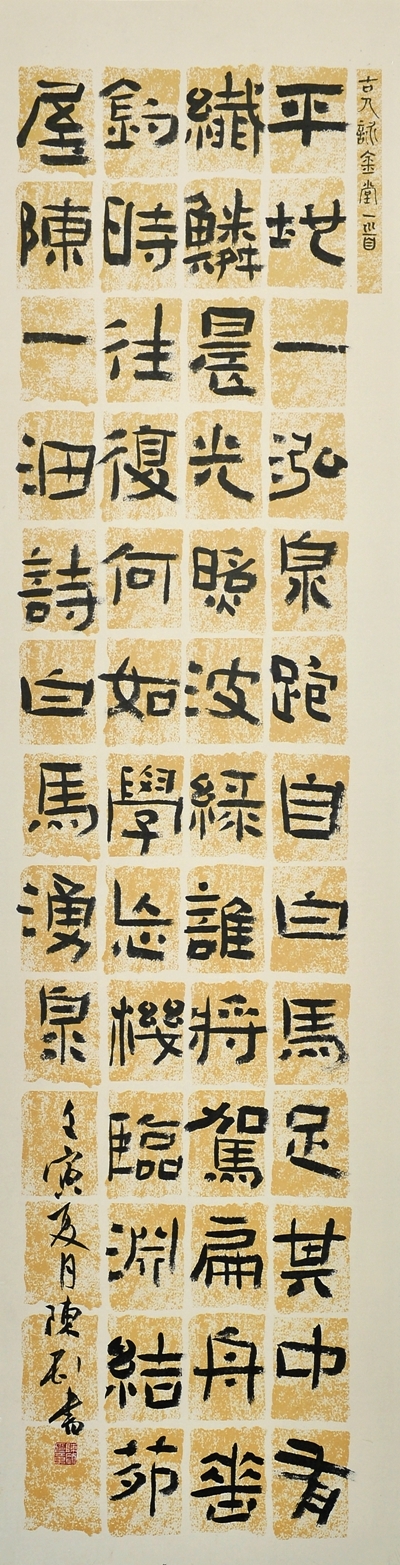 古人詠金堂一首
平地一泓泉跑自白馬足其中有
纖鱗晨光照波綠誰將駕扁舟垂
釣時往復何如學忘機臨淵結茆
屋陳一沺詩白馬湧泉
壬寅夏月陳書